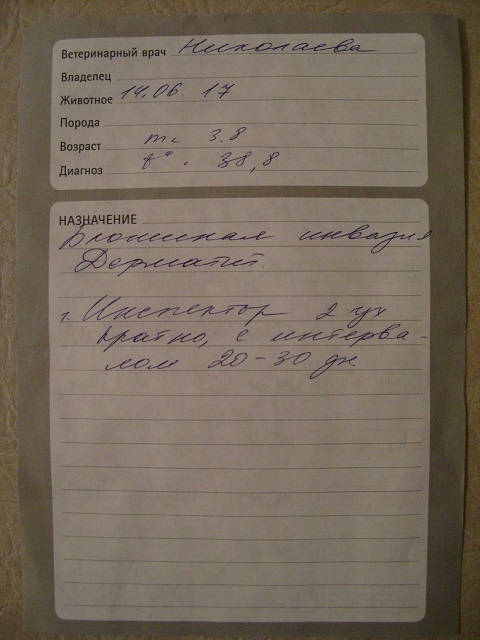 Ветеринарный врач Николаева
Владелец
Животное 14.06. 17
Порода
Возраст m = 3.8
Диагноз t° = 38,8
НАЗНАЧЕНИЕ
Блошиная инвазия
Дерматит.
1. Инспектор 2 ух
кратно, с интерва-
лом 20-30 дн.